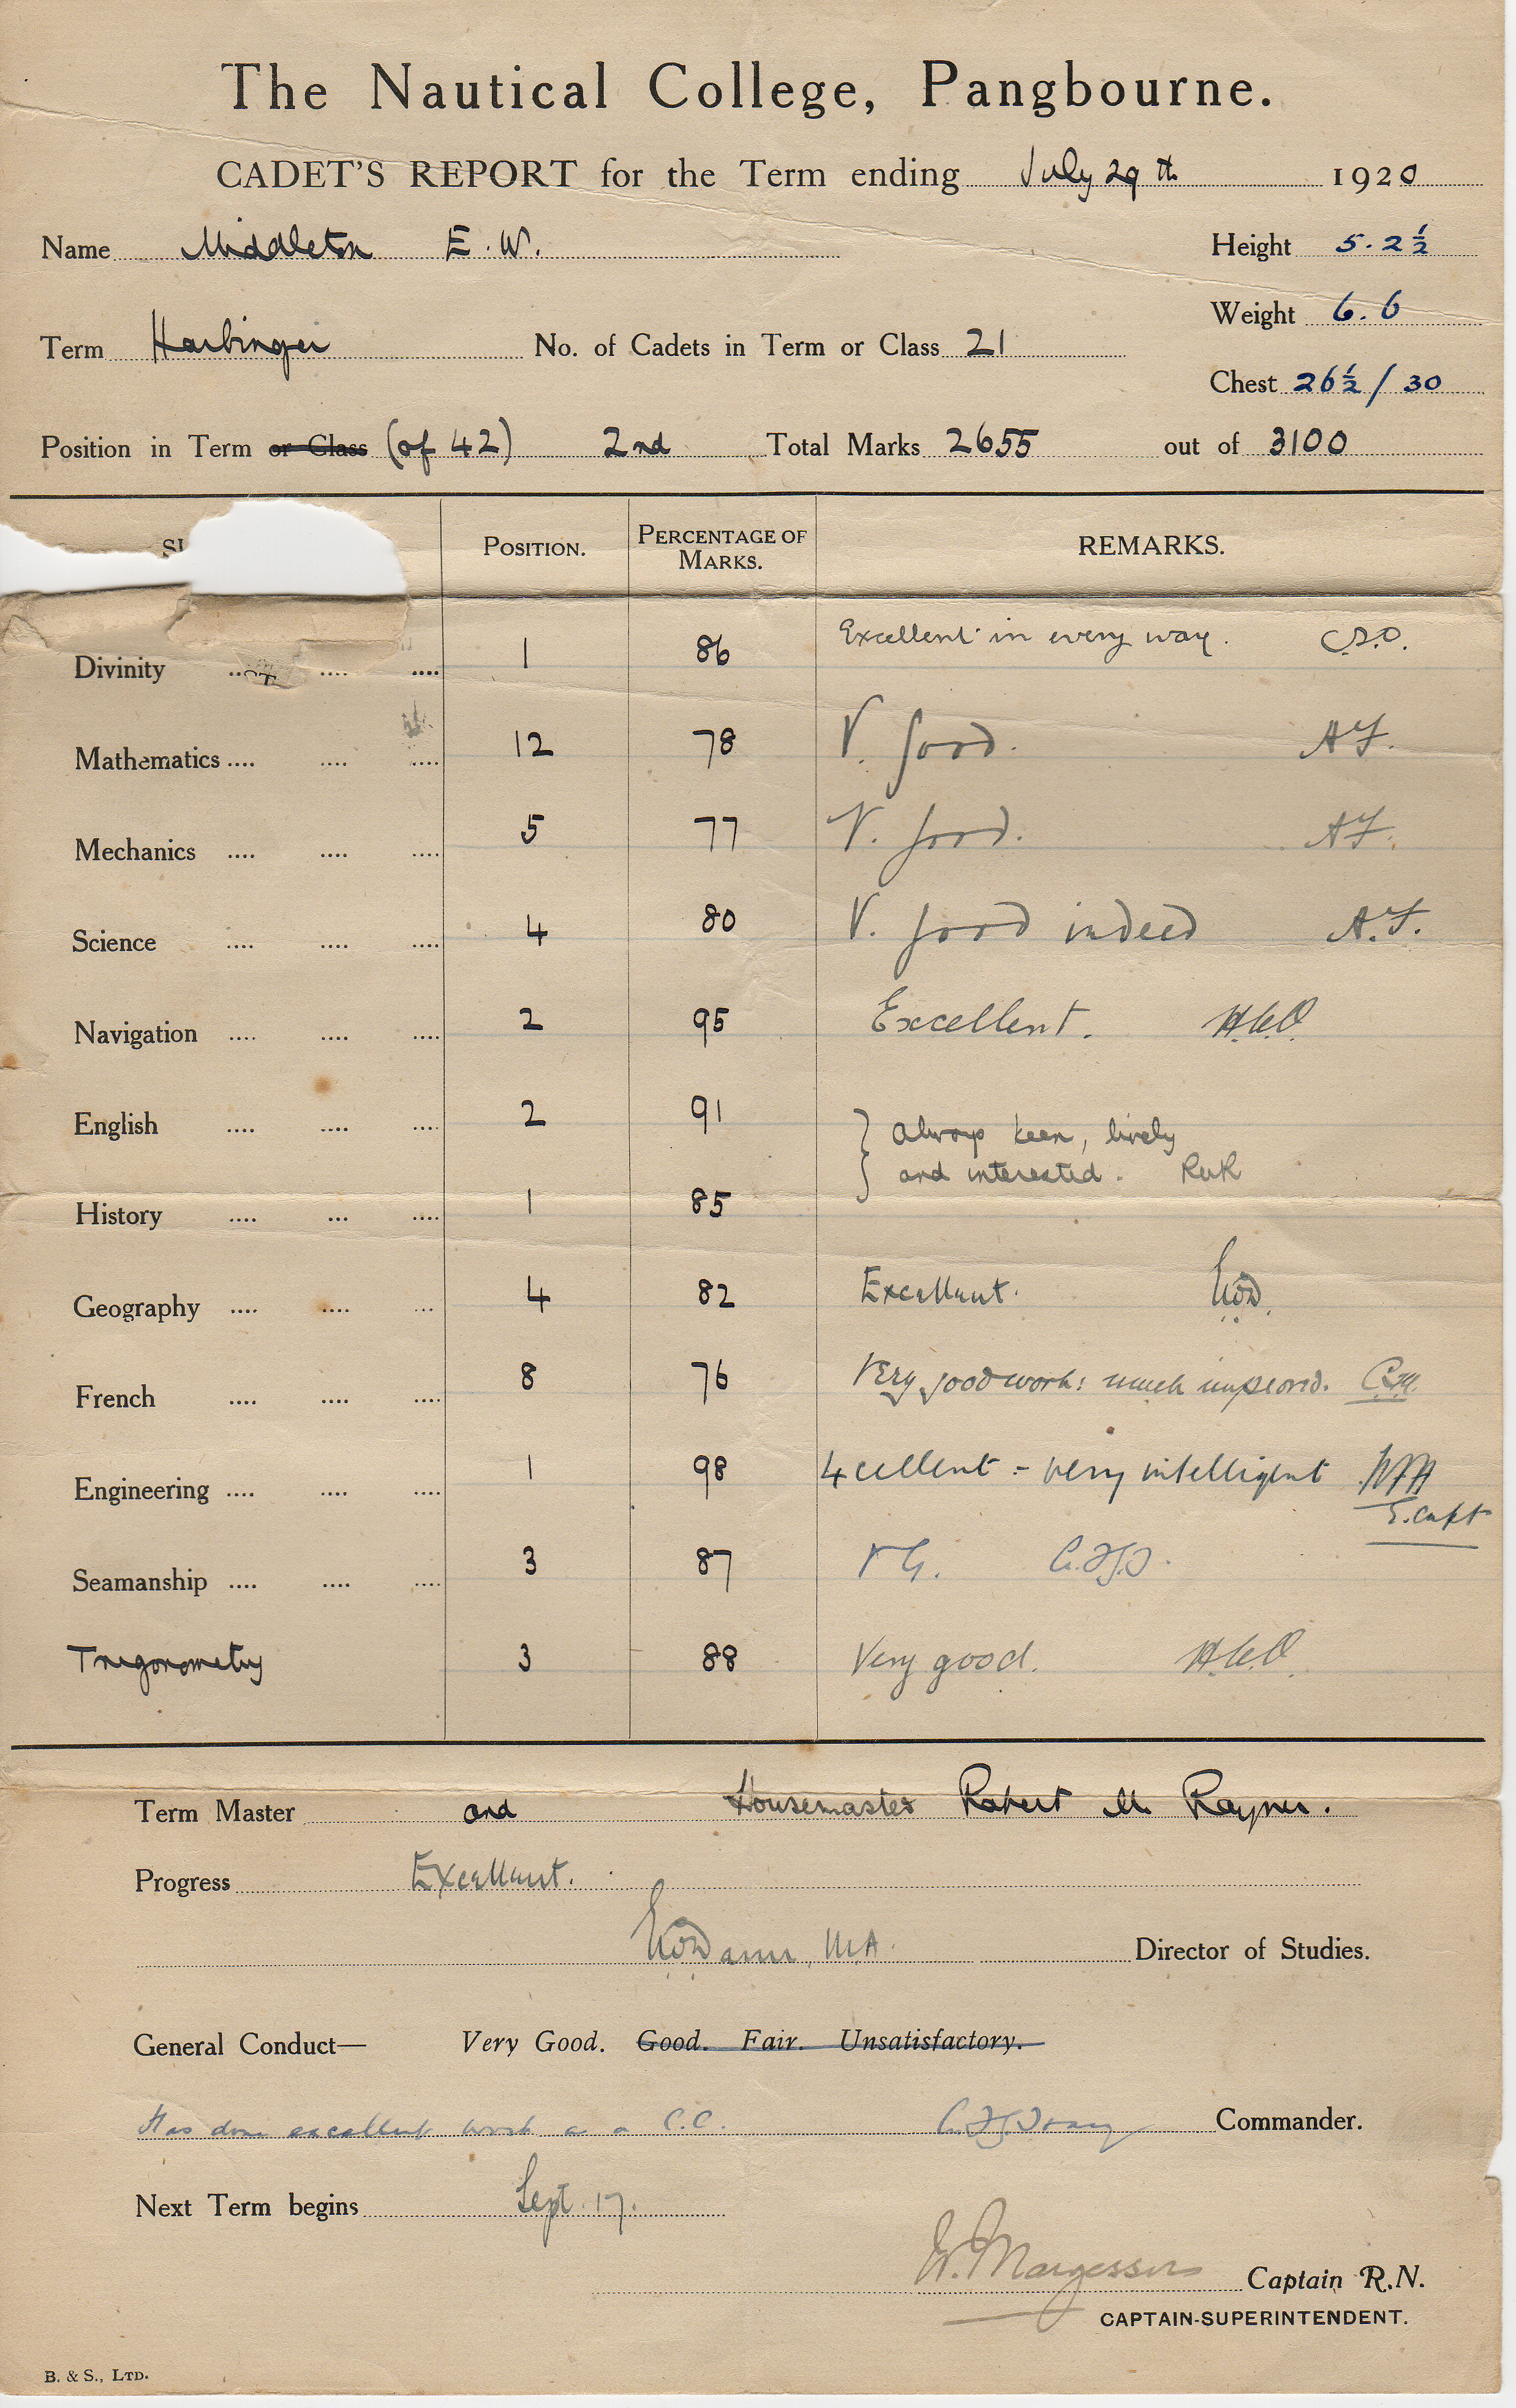 The Nautical College, Pangbourne.
CADET'S REPORT for the Term ending July 29th 1920
Name Middleton E. W. Height 5. 2½
Weight 6. 6
Term Harbinger No. of Cadets in Term or Class 21
Chest 26½ / 30
Position in Term or Class (of 42) 2nd Total Marks 2655 out of 3100
POSITION. PERCENTAGE OF MARKS. REMARKS.
Divinity .... .... 1 86 Excellent in every way.
Mathematics .... .... .... 12 78 V. good. A.F.
Mechanics .... .... .... 5 77 V. good. A.F.
Science .... .... .... 4 80 V. good indeed A.F.
Navigation .... .... .... 2 95 Excellent.
English .... .... .... 2 91 } Always keen, lively
and interested. RMR
History .... ... .... 1 85
Geography .... .... ... 4 82 Excellent.
French .... .... .... 8 76 Very good work: much improved.
Engineering .... .... .... 1 98 4cellent - very intelligent
E. Capt
Seamanship .... .... .... 3 87 VG.
Trigonometry 3 88 Very good.
Term Master and Housemaster Robert M. Rayner.
Progress Excellent.
M.A. Director of Studies.
General Conduct— Very Good. Good. Fair. Unsatisfactory.
Has done excellent work as a C.C. Commander.
Next Term begins Sept. 17.
W. Margesson Captain R.N.
CAPTAIN-SUPERINTENDENT.
B. & S., LTD.